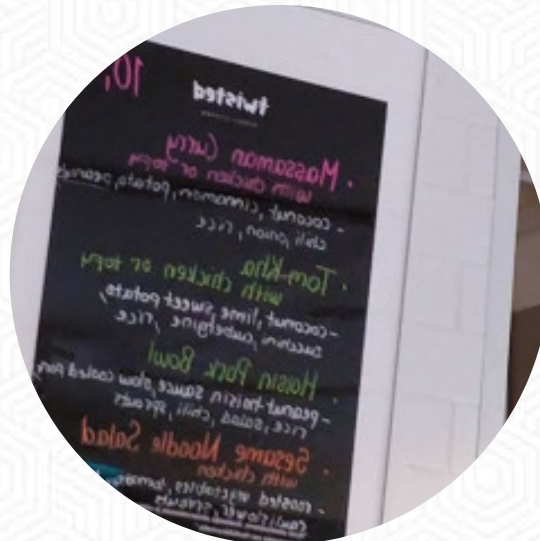 twisted
10,
• Massaman Curry
with chicken or tofu
- coconut, cinnamon, potato, peanuts,
chili, onion, rice
• Tom-Kha
with chicken or tofu
- coconut, lime, sweet potato,
zucchini, aubergine, rice
• Hoisin Pork Bowl
- peanut-hoisin sauce, slow cooked pork
rice, salad, chili, sprouts
• Sesame Noodle Salad
with chicken
- roasted vegetables,
cauliflower, sprouts